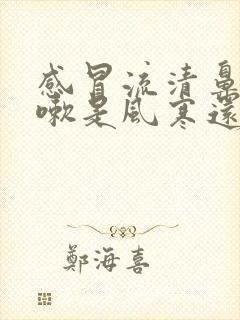 感冒流清鼻
嗽是風寒還
鄭海喜